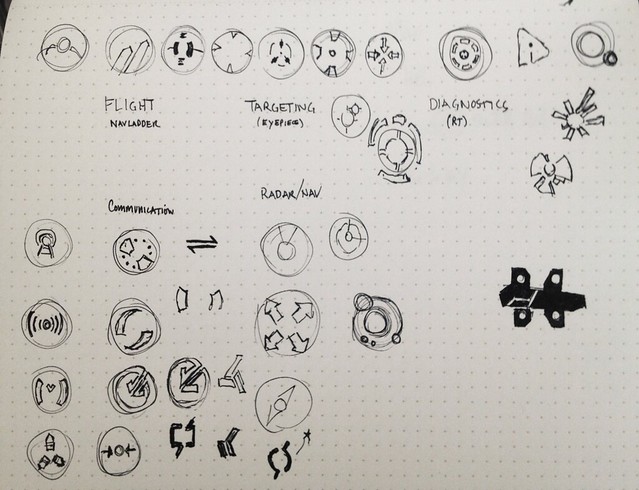 FLIGHT
NAVLADDER
TARGETING
(EYEPIECE)
DIAGNOSTICS
(RT)
COMMUNICATION
RADAR/NAV